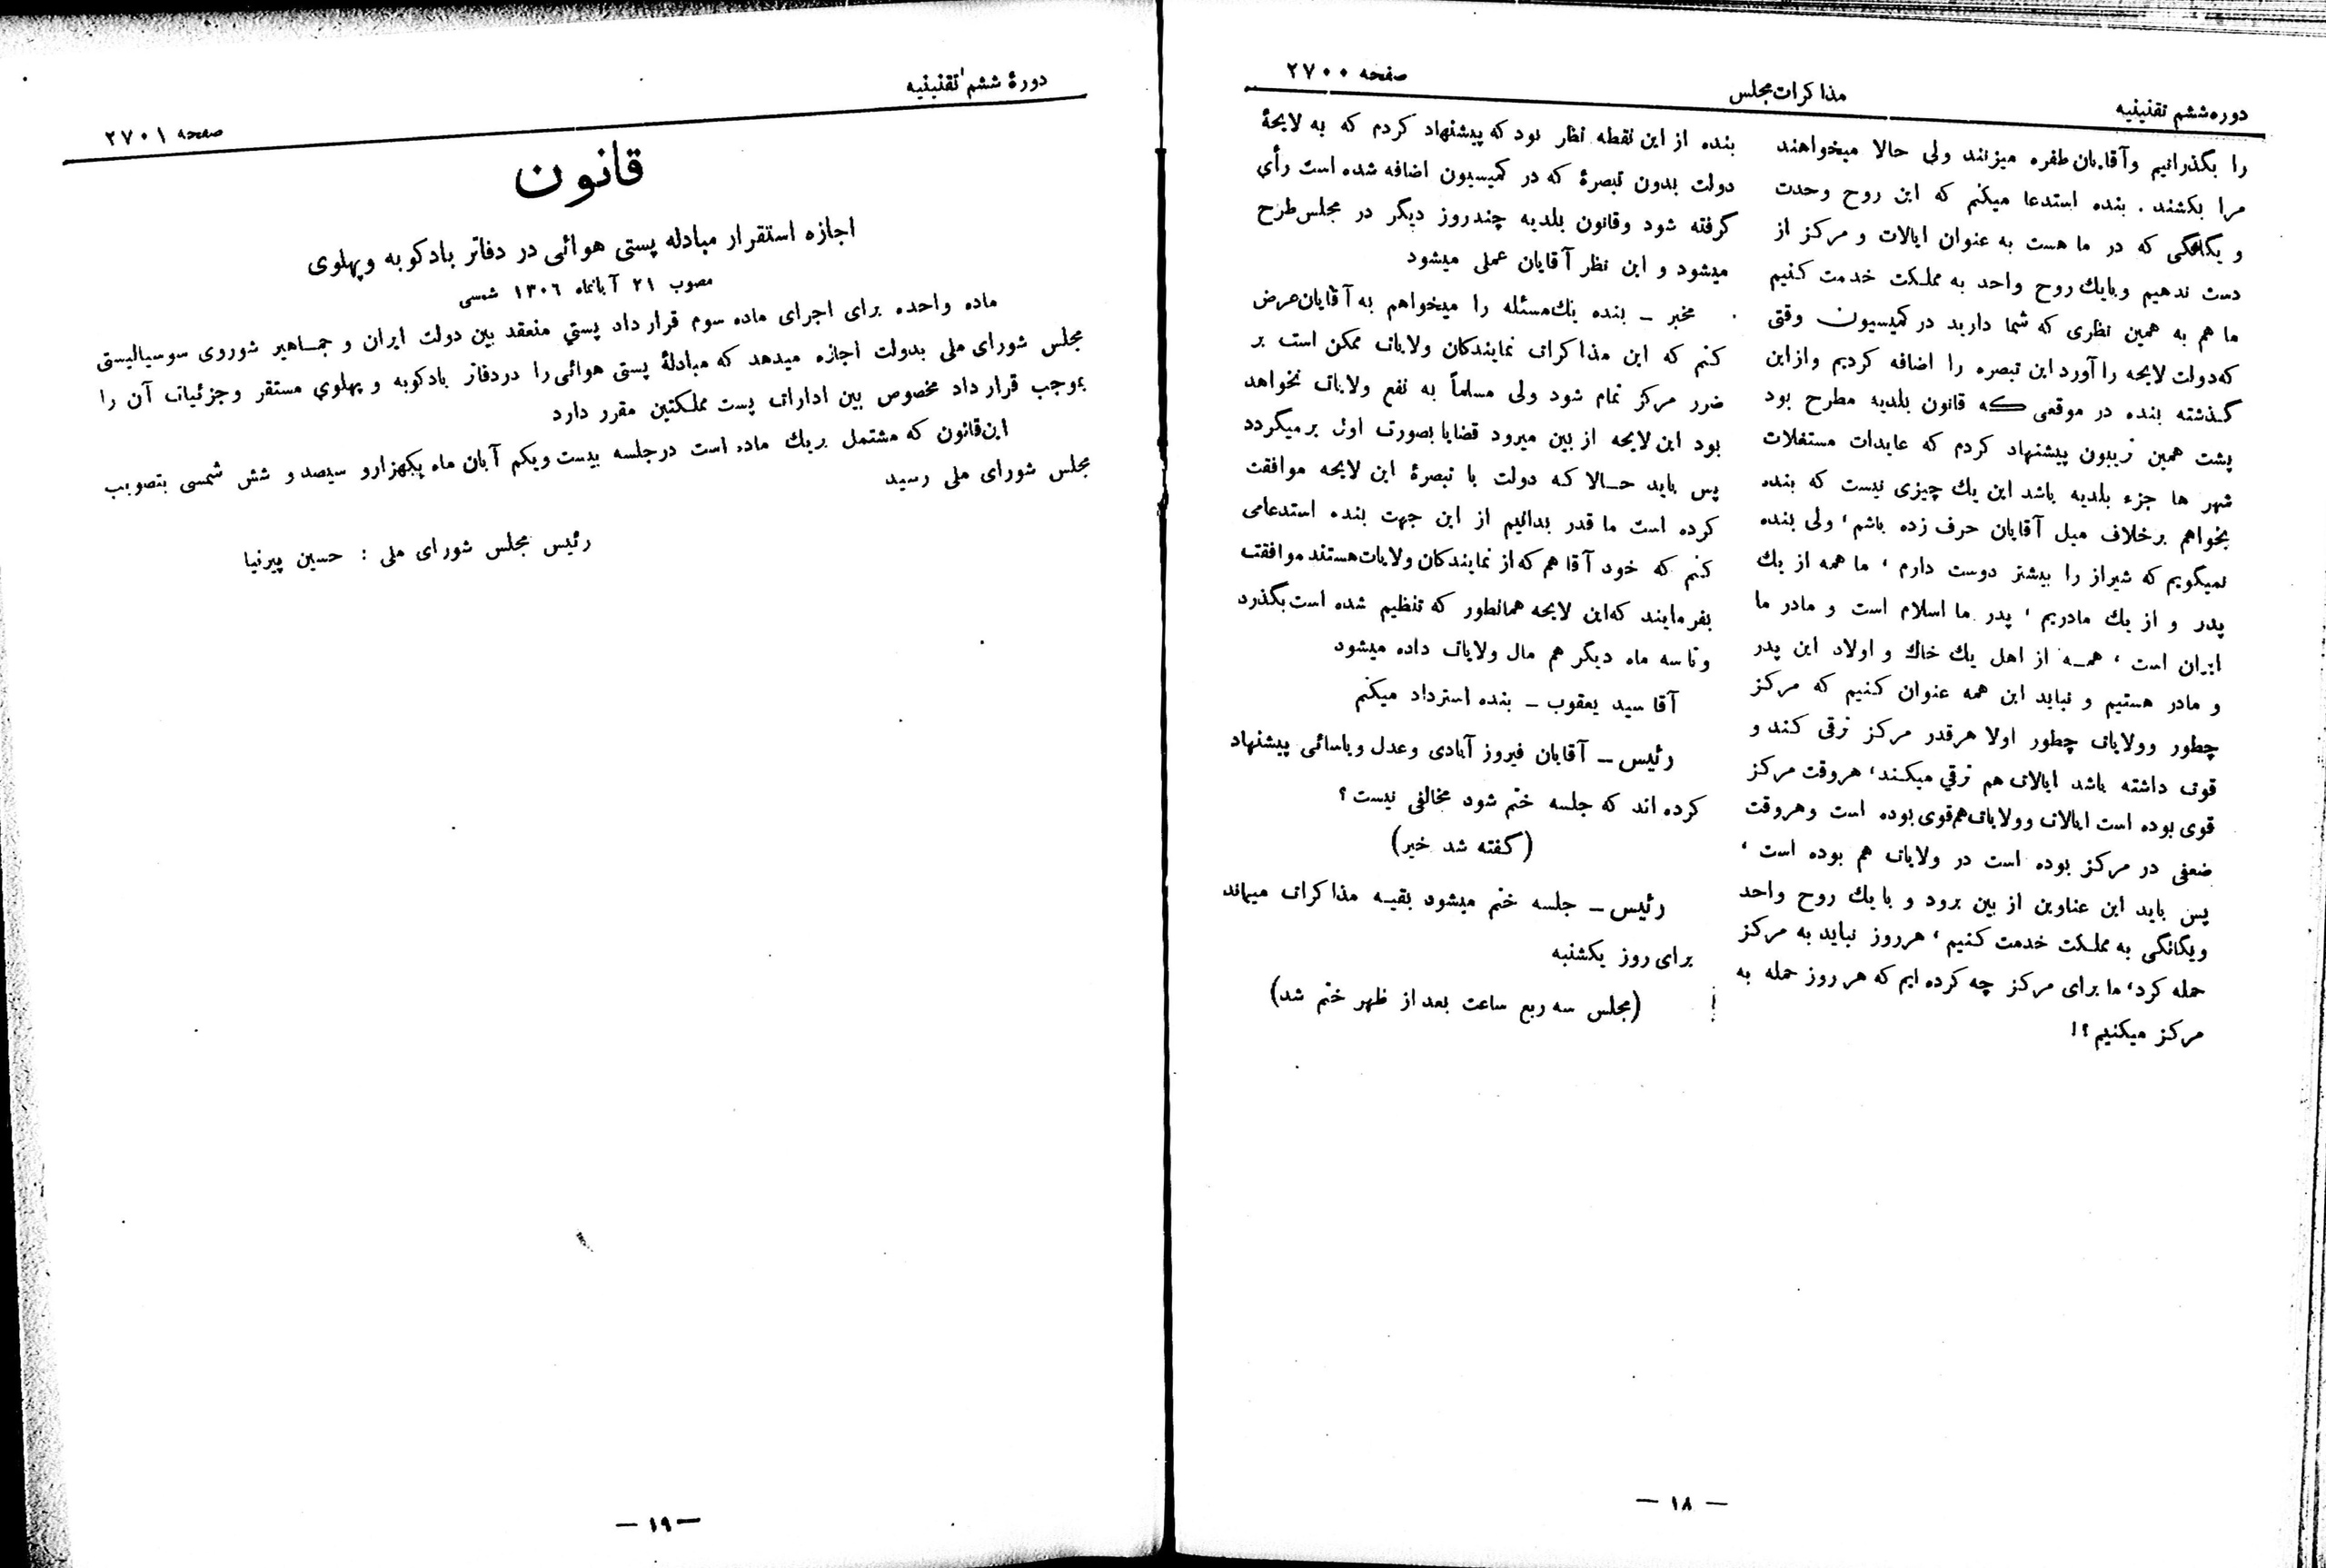 دوره ششم تقنینیه
مذاکرات مجلس
صفحه ۲۷۰۰
را بگذرانیم وآقایان طفره میزنند ولی حالا میخواهند
مرا بکشند . بنده استدعا میکنم که این روح وحدت
و یگانگی که در ما هست به عنوان ایالات و مرکز از
دست ندهیم وبایك روح واحد به مملکت خدمت کنیم
ما هم به همین نظری که شما دارید در کمیسیون وقتی
که دولت لایحه را آورد این تبصره را اضافه کردیم وازاین
گذشته بنده در موقعی که قانون بلدیه مطرح بود
پشت همین تریبون پیشنهاد کردم که عایدات مستغلات
شهر ها جزء بلدیه باشد این یك چیزی نیست که بنده
بخواهم برخلاف میل آقایان حرف زده باشم، ولی بنده
نمیگویم که شیراز را بیشتر دوست دارم ، ما همه از یك
پدر و از یك مادریم ، پدر ما اسلام است و مادر ما
ایران است ، همه از اهل یك خاك و اولاد این پدر
و مادر هستیم و نباید این همه عنوان کنیم که مرکز
چطور وولایات چطور اولا هرقدر مرکز ترقی کند و
قوت داشته باشد ایالات هم ترقي میکنند، هروقت مرکز
قوی بوده است ایالات وولایات هم قوی بوده است وهروقت
ضعفی در مرکز بوده است در ولایات هم بوده است ،
پس باید این عناوین از بین برود و با یك روح واحد
ویگانگی به مملکت خدمت کنیم ، هرروز نباید به مرکز
حمله کرد، ما برای مرکز چه کرده ایم که هر روز حمله به
مرکز میکنیم ؟!
بنده از این نقطه نظر بود که پیشنهاد کردم که به لایحهٔ
دولت بدون تبصرهٔ که در کمیسیون اضافه شده است رأی
گرفته شود وقانون بلدیه چندروز دیگر در مجلس طرح
میشود و این نظر آقایان عملی میشود
مخبر ــ بنده یك مسئله را میخواهم به آقایان عرض
کنم که این مذاکرات نمایندگان ولایات ممکن است بر
ضرر مرکز تمام شود ولی مسلماً به نفع ولایات نخواهد
بود این لایحه از بین میرود قضایا بصورت اول بر میگردد
پس باید حالا که دولت با تبصرهٔ این لایحه موافقت
کرده است ما قدر بدانیم از این جهت بنده استدعامی
کنم که خود آقا هم که از نمایندگان ولایات هستند موافقت
بفرمایند که این لایحه همانطور که تنظیم شده است بگذرد
وتا سه ماه دیگر هم مال ولایات داده میشود
آقا سید یعقوب ــ بنده استرداد میکنم
رئیس ــ آقایان فیروز آبادی وعدل ویاسائی پیشنهاد
کرده اند که جلسه ختم شود مخالفی نیست ؟
(گفته شد خیر)
رئیس ــ جلسه ختم میشود بقیه مذاکرات میماند
برای روز یکشنبه
(مجلس سه ربع ساعت بعد از ظهر ختم شد)
— ۱۸ —
دورهٔ ششم تقنینیه
صفحه ۲۷۰۱
قانون
اجازه استقرار مبادله پستی هوائی در دفاتر بادکوبه وپهلوی
مصوب ۲۱ آبانماه ۱۳۰۶ شمسی
ماده واحده برای اجرای ماده سوم قرار داد پستي منعقد بین دولت ایران و جماهیر شوروی سوسیالیستی
مجلس شورای ملی بدولت اجازه میدهد که مبادلهٔ پستی هوائی را دردفاتر بادکوبه و پهلوي مستقر وجزئیات آن را
بموجب قرار داد مخصوص بین ادارات پست مملکتین مقرر دارد
این قانون که مشتمل بریك ماده است درجلسه بیست ویکم آبان ماه یکهزارو سیصد و شش شمسی بتصویب
مجلس شورای ملی رسید
رئیس مجلس شورای ملی : حسین پیرنیا
— ۱۹ —